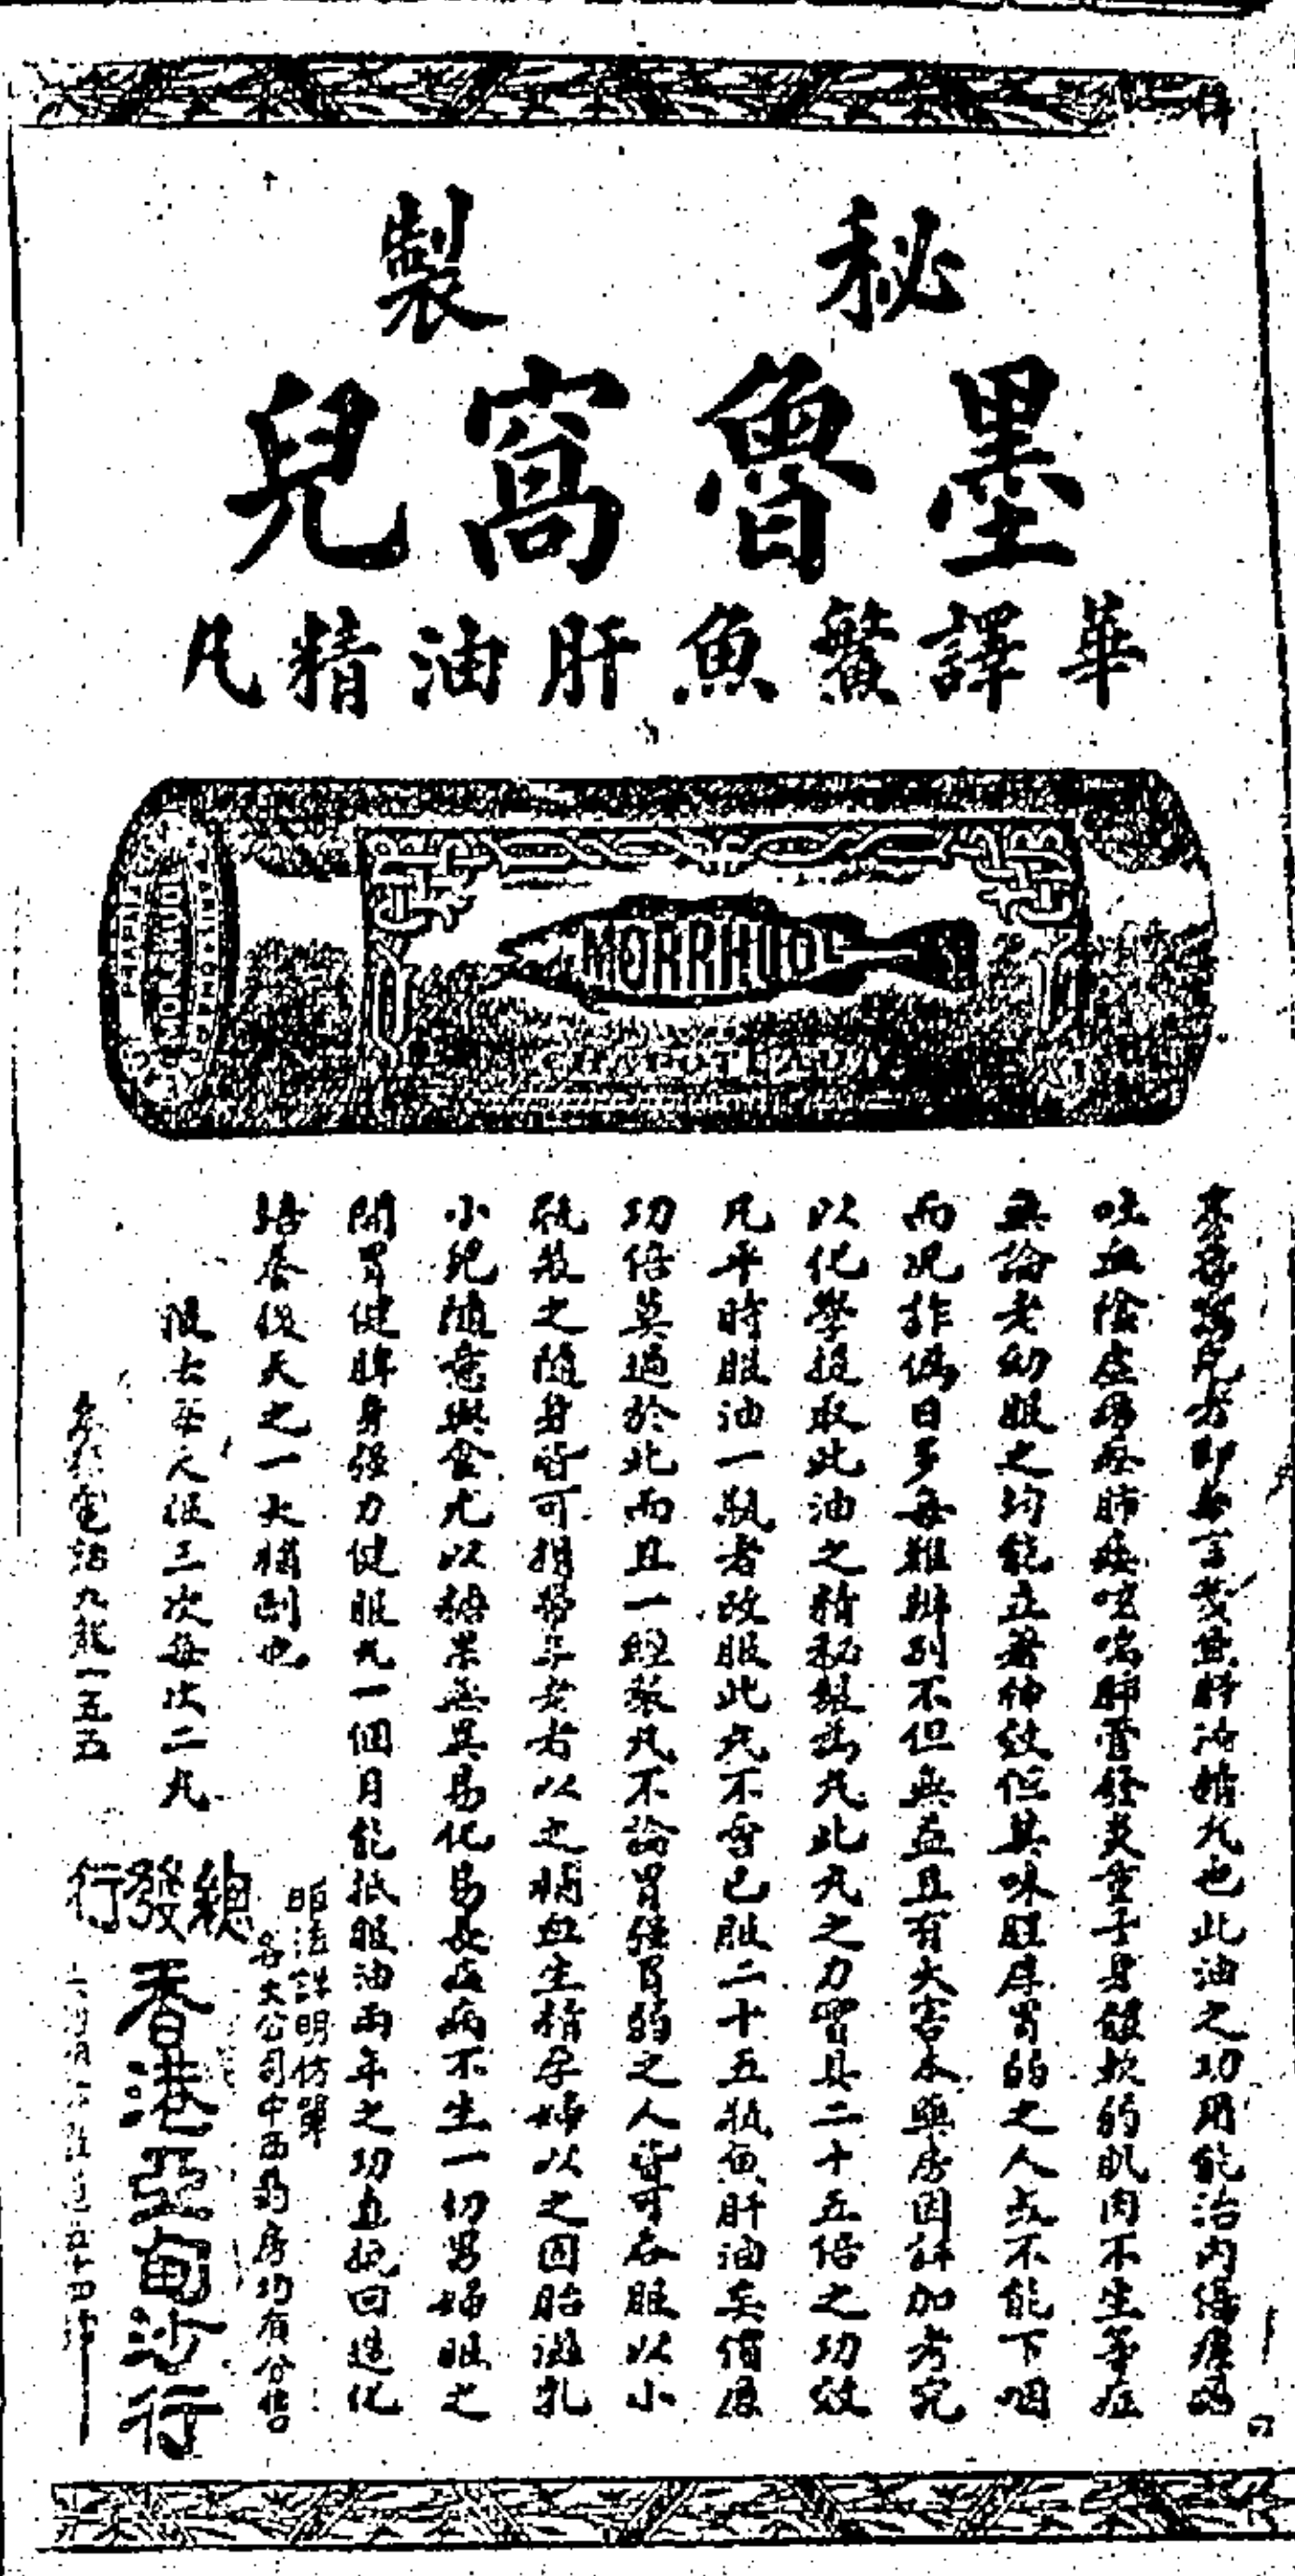 秘製
墨魯窩兒
華譯鰵魚肝油精凡
MORRHUOL
MORRHUOL
窩兒者即 肝油精丸也此油之功用能治內傷
吐血陰虛癆 肺 咳喘肺管發炎童子身體軟弱肌肉不生等症
無論老幼服之均能立著神效但其味腥厚胃弱之人或不能下咽
而况詐偽日多每難辨別不但無益且有大害本藥房因詳加考究
以化學提取此油之精秘製為丸此丸之力實具二十五倍之功效
凡平時服油一瓶者改服此丸不啻已服二十五瓶魚肝油矣價廉
功倍莫過於此而且一經製丸不論胃強胃弱之人皆可吞服以小
瓶裝之隨身皆可携帶年老者以之補血生精孕婦以之固胎滋乳
小兒隨意與食尤以糖菓無異易化易長疾病不生一切男婦服之
開胃健脾身強力健服丸一個月能抵服油兩年之功直挽回造化
培養後天之一大補劑也
服法每天服三次每次二丸
服法詳明仿單
各大公司中西葯房均有分售
總發行
香港亞甸沙行
電話九龍一五五
五十四